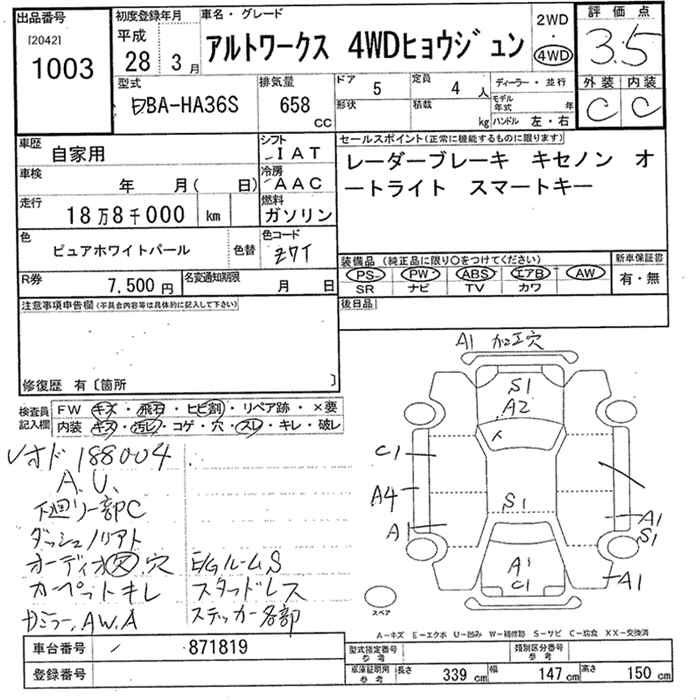 出品番号
[2042]
1003
初度登録年月
平成
28年3月
車名・グレード
アルトワークス 4WDヒョウジュン
2WD
・
4WD
評価点
3.5
外装 内装
C C
型式
DBA-HA36S
排気量
658
CC
ドア 5
定員 4 人
形状
積載 kg
ディーラー・並行
モデル年式 年
ハンドル 左・右
車歴
自家用
シフト
IAT
車検
年 月( 日)
冷房
AAC
走行
18万8千000 km
燃料
ガソリン
色
ピュアホワイトパール
色替
色コード
Z7T
R券
7,500円
名変通知期限
月 日
セールスポイント(正常に機能するものに限ります)
レーダーブレーキ キセノン オ
ートライト スマートキー
装備品(純正品に限り○をつけてください)
PS PW ABS エアB AW
SR ナビ TV カワ
新車保証書
有・無
後日品
注意事項申告欄(不具合内容等は具体的に記入して下さい)
修復歴 有〔箇所 〕
検査員
記入欄
FW キズ・飛石・ヒビ割・リペア跡・×要
内装 キズ・汚レ・コゲ・穴・スレ・キレ・破レ
オド 188004
A.U.
下廻リ一部C
ダッシュノリアト
オーディオ欠 穴
カーペットキレ
ガミラー、AW.A
E/GルームS
スタッドレス
ステッカー各部
A1 加工穴
S1
A2
C1
A4
A1
S1
A1
S1
A1
C1
A1
スペア
A-キズ E-エクボ U-凹み W-補修跡 S-サビ C-腐食 XX-交換済
車台番号
871819
登録番号
型式指定番号
参考
類別区分番号
参考
車庫証明用
参考
長さ 339 cm 幅 147 cm 高さ 150 cm